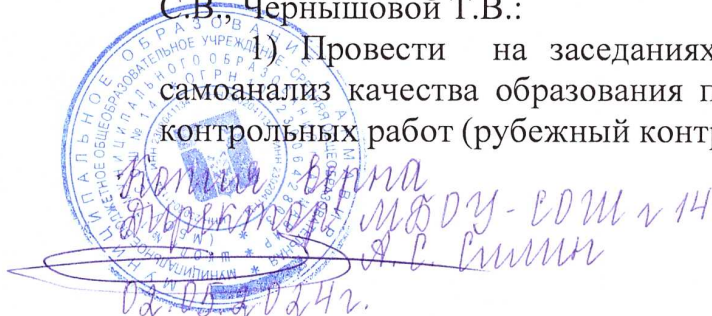 С.В., Чернышовой Т.В.:
1) Провести на заседаниях
самоанализ качества образования п
контрольных работ (рубежный контр
Копия верна
Директор МБОУ-СОШ № 14
А.С. Силин
02.05.2024г.